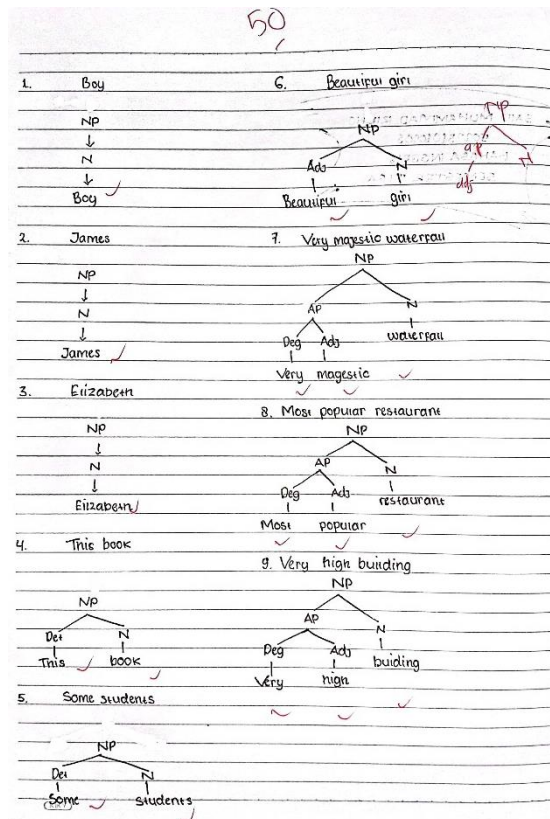 50
1. Boy
NP
N
Boy
2. James
NP
N
James
3. Elizabeth
NP
N
Elizabeth
4. This book
NP
Det N
This book
5. Some students
NP
Det N
Some students
6. Beautiful girl
NP
Adj N
Beautiful girl
NP
ap N
adj
7. Very majestic waterfall
NP
AP N
Deg Adj waterfall
Very magestic
8. Most popular restaurant
NP
AP N
Deg Adj restaurant
Most popular
9. Very high building
NP
AP N
Deg Adj buiding
Very high